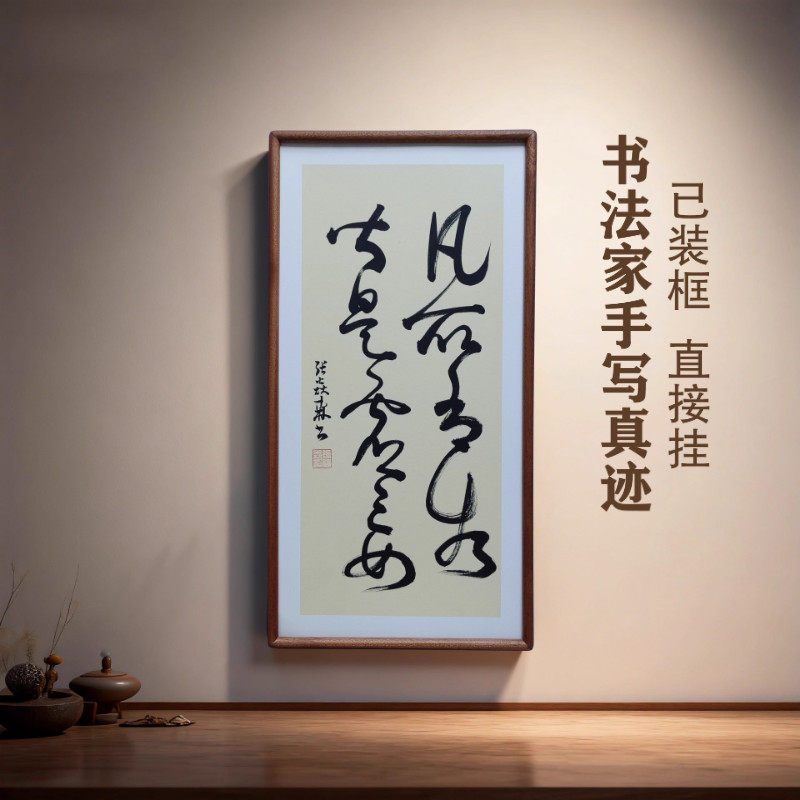 凡所有相
皆是虚妄
书法家手写真迹
已装框 直接挂